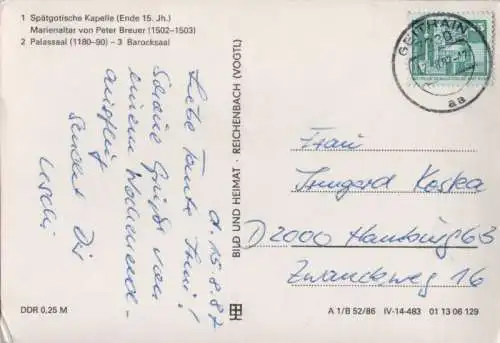 1 Spätgotische Kapelle (Ende 15. Jh.)
Marienaltar von Peter Breuer (1502–1503)
2 Palassaal (1180–90) – 3 Barocksaal
d. 15.8.87
Liebe Tante Irmi!
Schöne Grüße von
einem Wochenend-
ausflug
sendet Dir
Uschi
DDR 0,25 M
BILD UND HEIMAT · REICHENBACH (VOGTL)
GEITHAIN
aa
Frau
Irmgard Koska
D 2000 Hamburg 63
Zwanckweg 16
A 1/B 52/86 IV-14-483 01 13 06 129